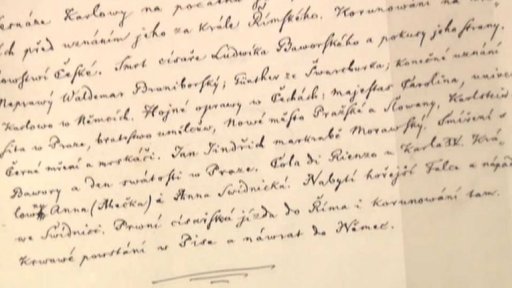 Karlowy na počátku
před uznáním jeho za krále Římského. Korunowání na
Českém. Smrt císaře Ludwika Baworského a pokusy jeho strany.
Waldemar Braniborský; Günther ze Šwarcburka; konečné uznání
Karlowo w Němcích. Hojné oprawy w Čechách; majestas Carolina, univer
sita w Praze, bratrstwo umělcůw, Nowé město Pražské a Slowany, Karlstein
Černé mření a mrskáři. Jan Jindřich markrabě Morawský. Smíření s
Bawory a den swátosti w Praze. Cola di Rienzo u Karla IV. Krá
lowny Anna (Anežka) a Anna Swidnická. Nabytí hořejší Falce a nápad
we Swídnici. Prwní císařská jízda do Říma i korunowání tam.
Krwawé powstání w Pise a náwrat do Němec.